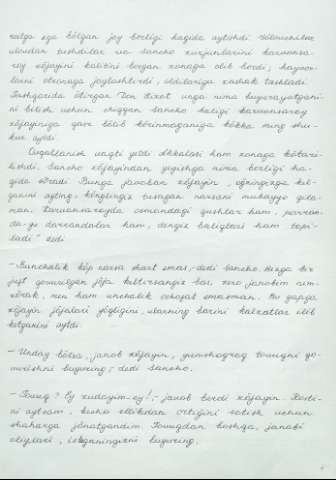 ratga ega bo'lgan joy borligi haqida aytishdi. Hammalari
ulovdan tushdilar va Sancho xurjunlarini karvonsa-
roy xo'jayini kalitini bergan xonaga olib bordi; hayvon-
larni otxonaga joylashtirdi, oldilariga xashak tashladi.
Tashqarida o'tirgan Don Kixot unga nima buyurayotgani-
ni bilish uchun chiqqan Sancho haligi karvonsaroy
xo'jayiniga qasr bo'lib ko'rinmaganiga ko'kka ming shu-
kur aytdi.
Ovqatlanish vaqti yetdi. Ikkalasi ham xonaga ko'tari-
lishdi. Sancho xo'jayindan yeyishga nima borligi ha-
qida so'radi. Bunga javoban xo'jayin, og'zingizga kel-
ganini ayting, ko'nglingiz tusagan narsani muhayyo qila-
man. Karvonsaroyda osmondagi qushlar ham, parran-
da-yu darrandalar ham, dengiz baliqlari ham topi-
ladi" dedi.
– Bunchalik ko'p narsa shart emas, - dedi Sancho. Bizga bir
juft qovurilgan jo'ja keltirsangiz bas, zero janobim nim-
jonroq, men ham unchalik ochofat emasman. Bu gapga
xo'jayin jo'jalari yo'qligini, ularning barini kalxatlar olib
ketganini aytdi.
– Unday bo'lsa, janob xo'jayin, yumshoqroq tovuqni qo-
vurishni buyuring; - dedi Sancho.
– Tovuq? Ey xudoyim-ey!, - javob berdi xo'jayin. Rosti-
ni aytsam, kecha ellikdan ortig'ini sotish uchun
shaharga jo'natgandim. Tovuqdan boshqa, janobi
oliylari, istaganingizni buyuring.